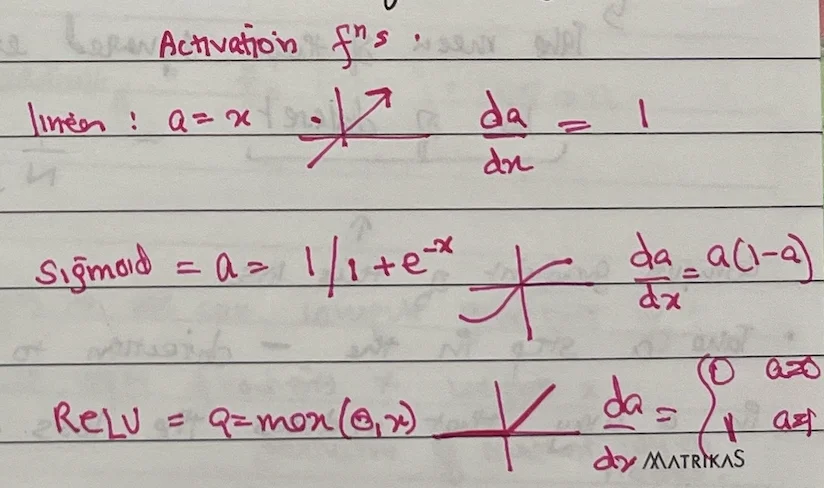 Activation fⁿs :
linear : a = x da/dx = 1
Sigmoid = a = 1/1+e^-x da/dx = a(1-a)
ReLU = a=max(0,x) da/dx = { 0 a=0
1 a=1
MATRIKAS